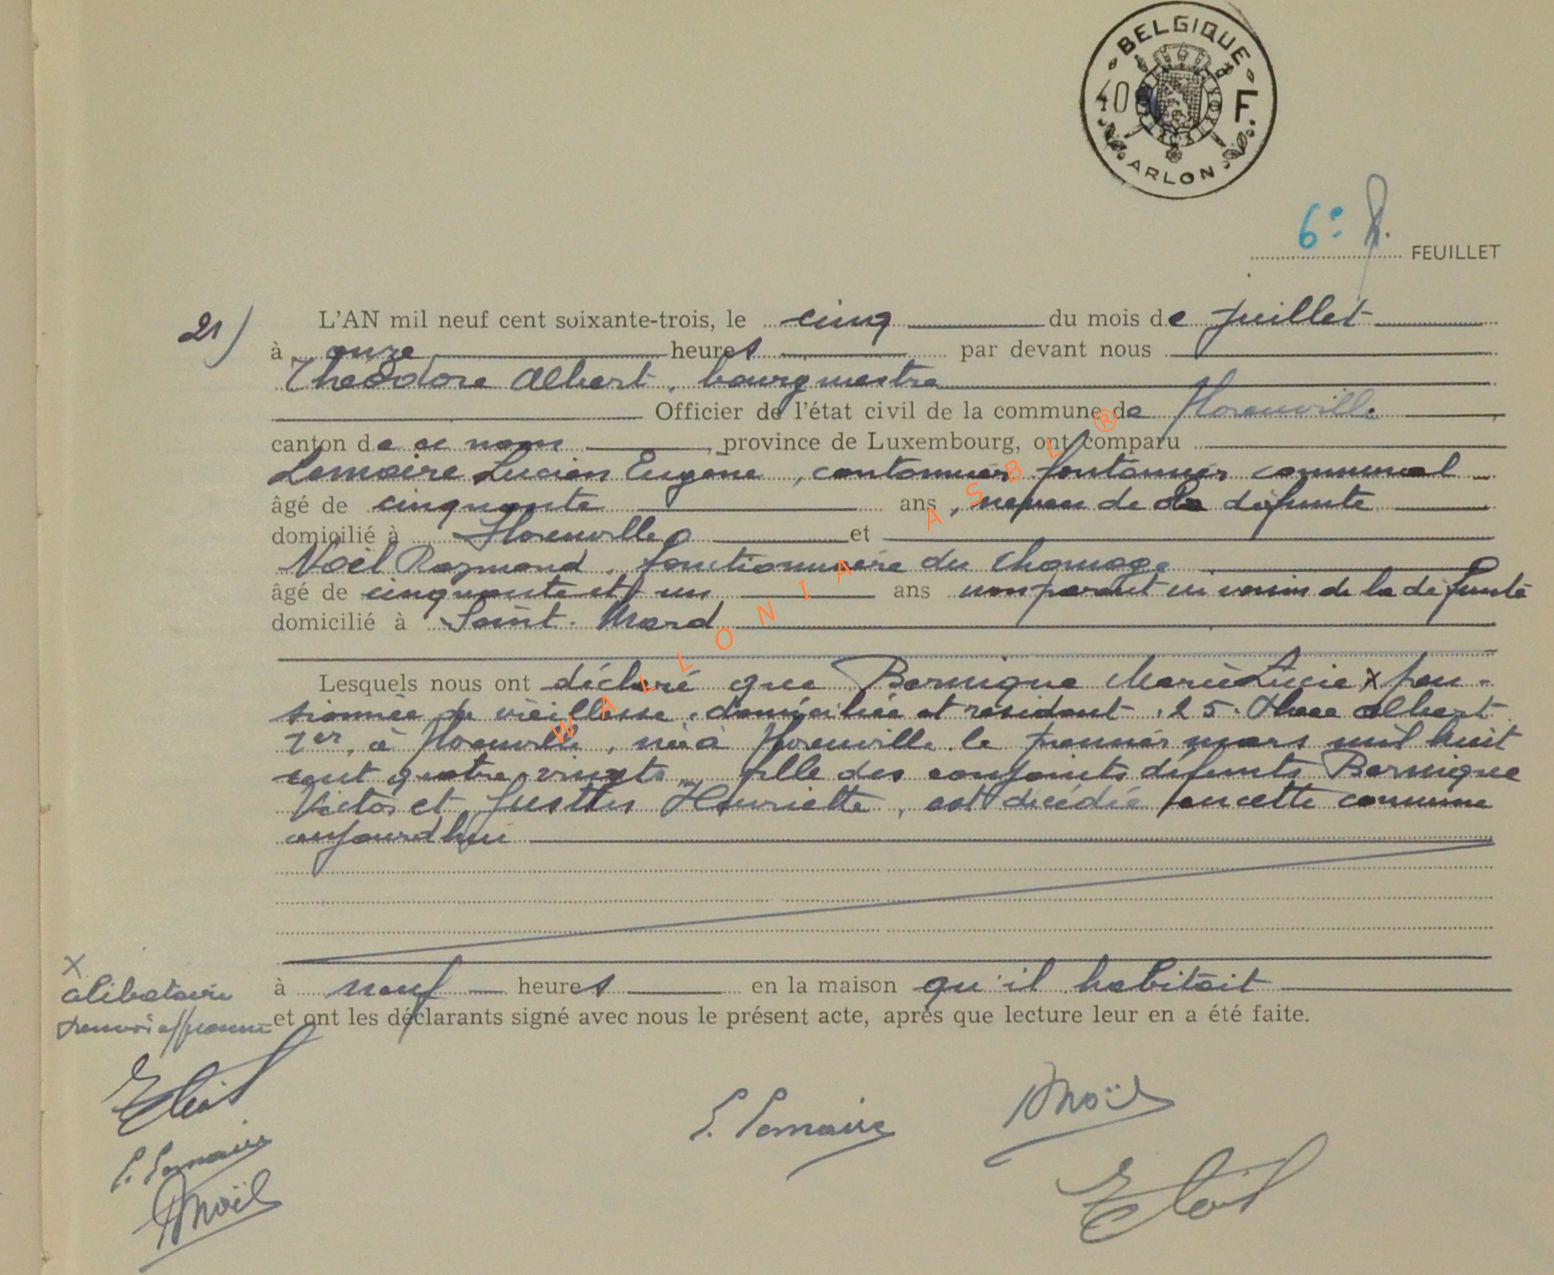 BELGIQUE
40 F
ARLON
6e FEUILLET
21) L'AN mil neuf cent soixante-trois, le cinq du mois de juillet
à onze heures par devant nous
Théodore Albert, bourgmestre
Officier de l'état civil de la commune de Florenville
canton de ce nom, province de Luxembourg, ont comparu
Lemaire Lucien Eugène, cantonnier fontainier communal
âgé de cinquante ans, neveu de la défunte
domicilié à Florenville et
Noël Raymond, fonctionnaire du chomage
âgé de cinquante et un ans non parent ni voisin de la défunte
domicilié à Saint-Mard
Lesquels nous ont déclaré que Bernique Marie Lucie x pen-
sionnée de vieillesse, domiciliée et résidant, 25 Place Albert
1er, à Florenville, née à Florenville le premier mars mil huit
cent quatre-vingts, fille des conjoints défunts Bernique
Victor et Henriette, est décédée en cette commune
aujourd'hui
à neuf heures en la maison qu'il habitait
et ont les déclarants signé avec nous le présent acte, après que lecture leur en a été faite.
x
célibataire
renvoi approuvé
L. Lemaire
Noël
L. Lemaire
Noël
WALLONIA ASBL ®